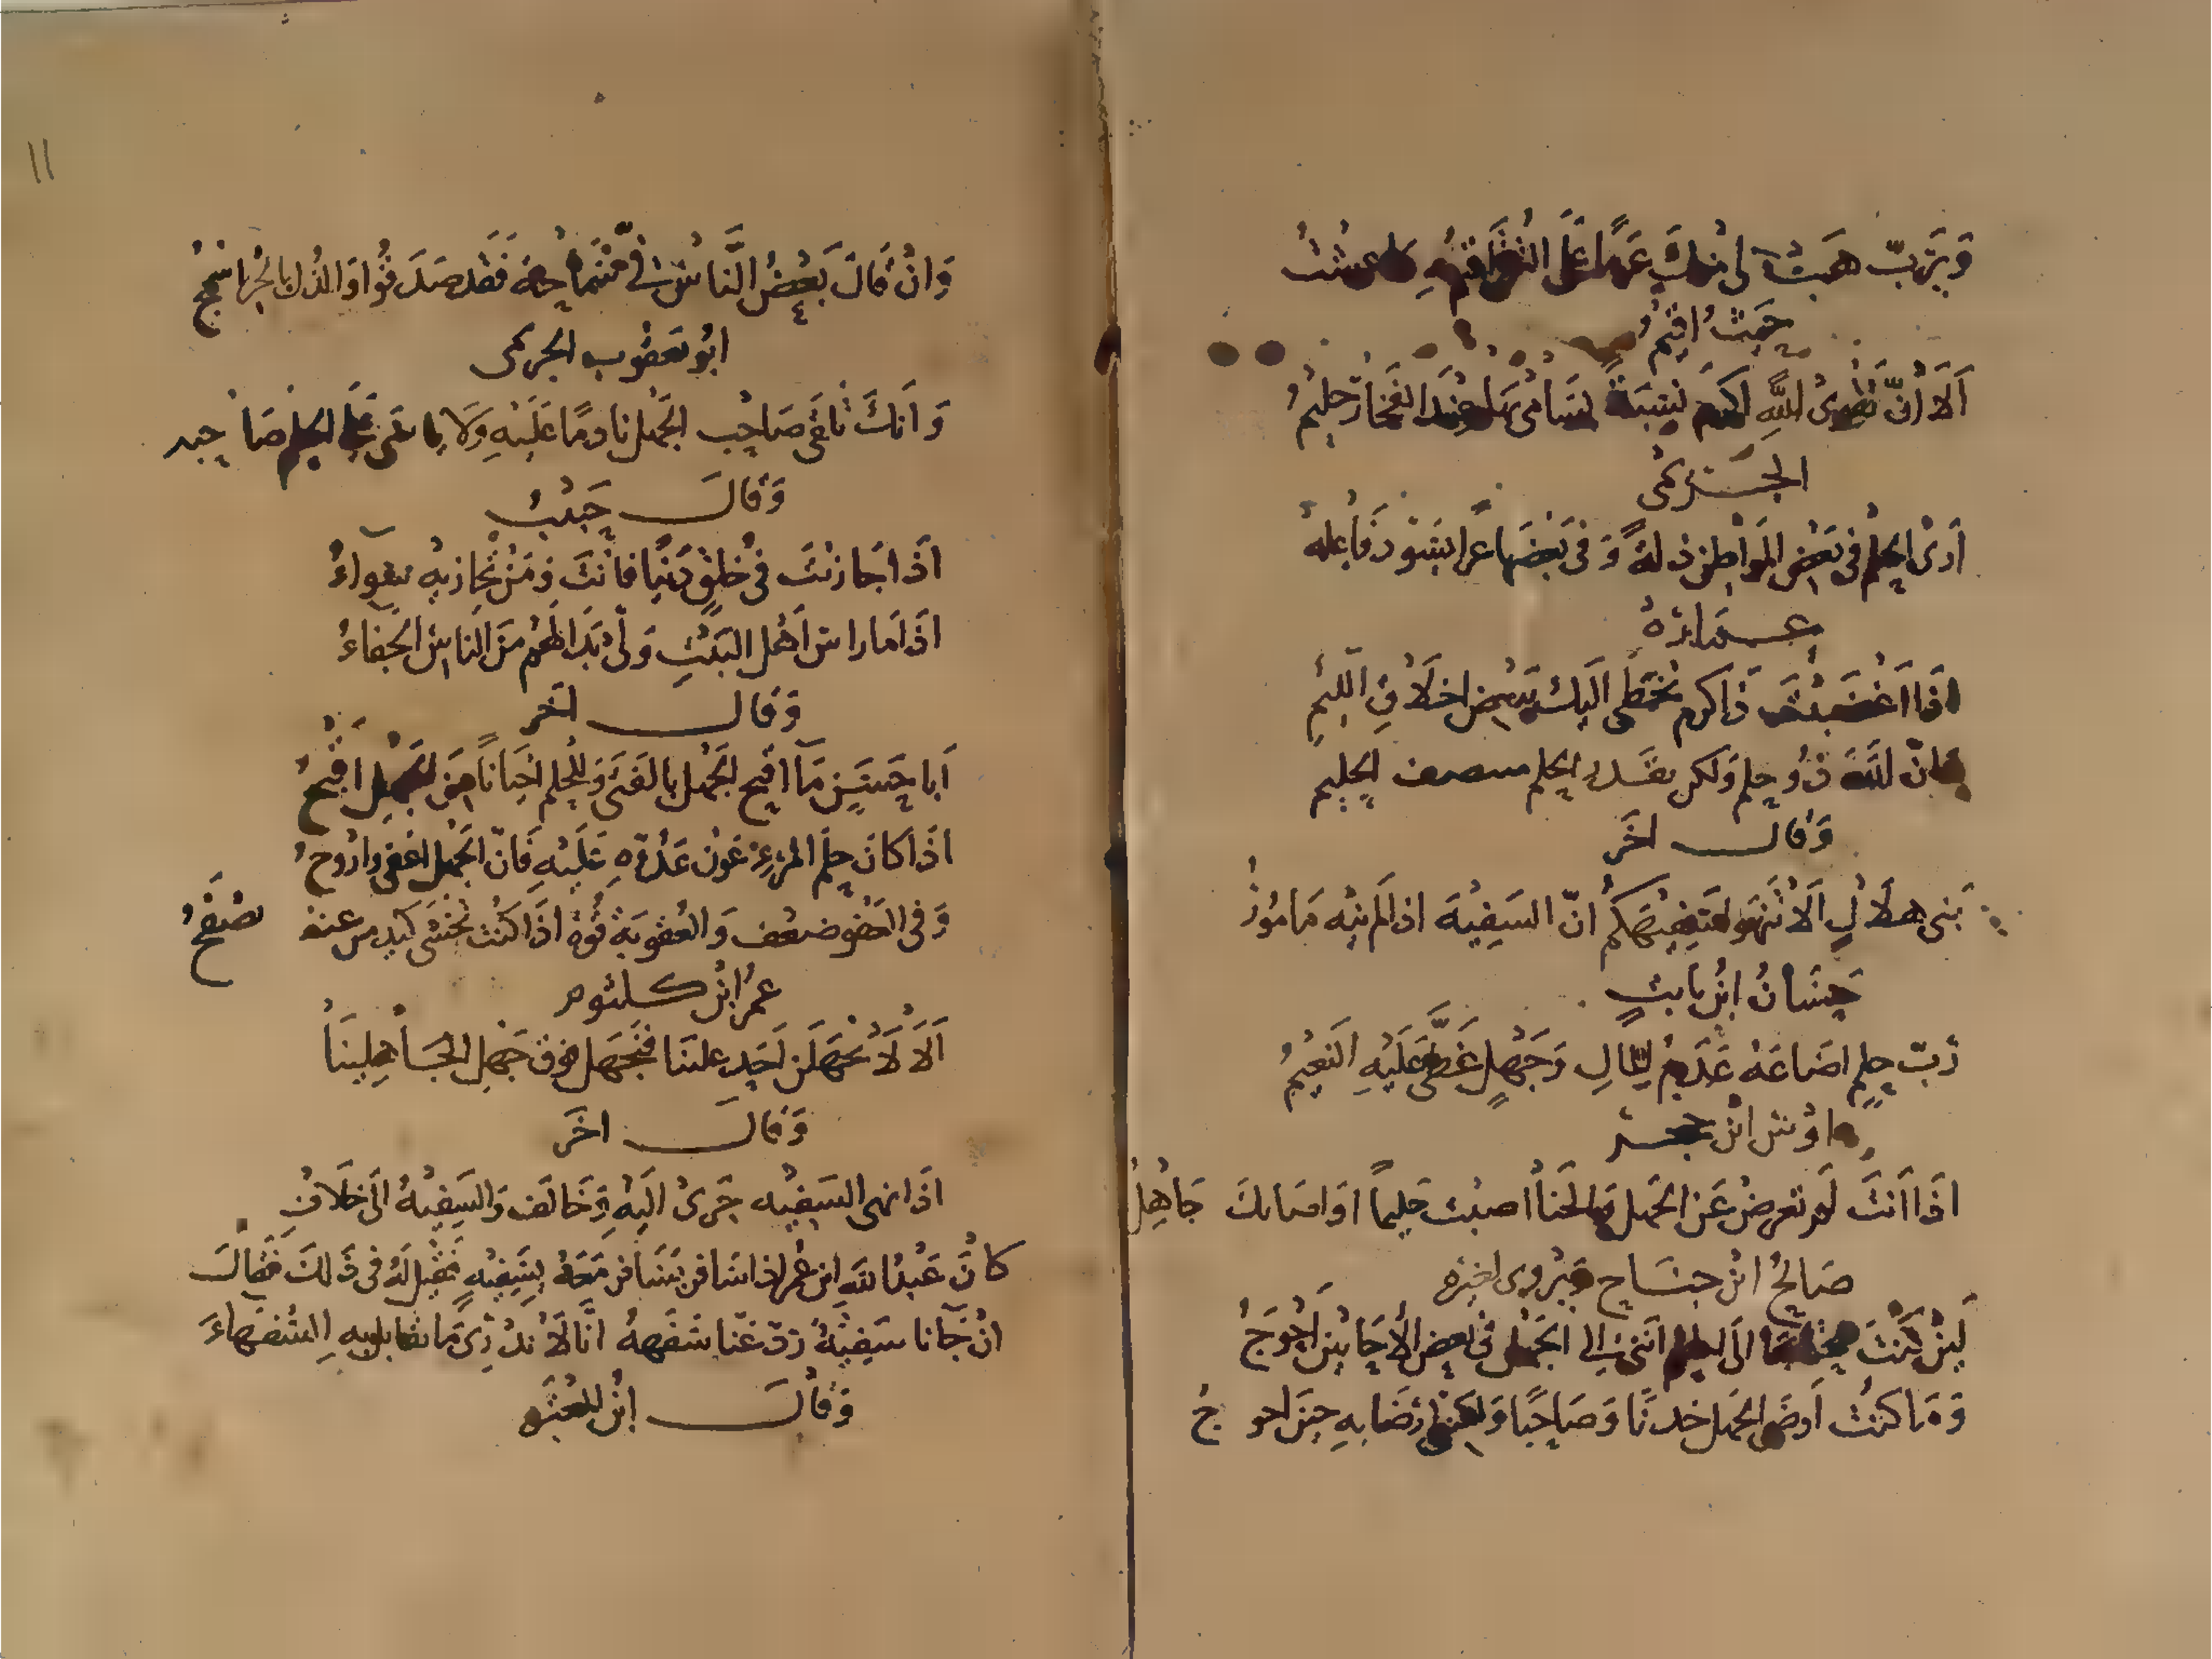 وَيَرَبّ هَبْ لى منكَ عَزمًا عَلَى التُقَى اقيمُ به ما عشتُ
حَيثُ اقيمُ
اَلَا اِنّ تقوىُ اللَّهِ اكرَم نِسْبَةً يُسَامى بهَا عِندَ الفَخَار حليمُ
الجَريمى
اَرىَ الحِلم فى بَعض المَوَاطِن ذلةً وَ فى بَعضِهَا عَزا يسَود فَاعِلهُ
عمارةُ
اذَا اغْضَبْتَ ذَاكرم تخَطى اليكَ ببَعض اخلَاق اللئيمِ
فانّ اللَّهَ ذُو حِلم وَلكن بقَدر الحِلم ينتصف الحِليم
وَقالَ اخَر
بَنى هلَالٍ اَلَا تَنْهَو سَفِيهَكُم انّ السَفِيهَ اذالَم ينه مَامُورُ
حَسَّانُ ابْن ثابتٍ
رُبّ حِلمٍ اضَاعَهُ عَدَمُ المَالِ وَجَهْلٍ غَطَّى عَلَيْهِ النَعِيمُ
اوس ابن حجر
اذَا اَنتَ لَم تعرض عَن الجَهل وَالخنَا اصبْت حَليماً اَوَاصَابكَ جَاهِلُ
صَالحُ ابْن جنَاح وَيرْوى لغيره
لَئِنْ كُنْتَ محتاجًا الَى الحِلم انَنى الى الجَهْل فى بعض الأحَايينِ اَحْوَجُ
وَ مَا كنتُ اَرضَى الجَهل خدنًا وَ صَاحِبًا وَلكننى ارْضَا بِهِ حينَ احو جُ
١١
وَانْ قَالَ بَعْضُ النَّاسُ فى سَمَاجَة فَقَد صَدَقُوا وَالذُل بالحُر اسْمجُ
ابُو يَعقوب الجريمى
وَ اَنكَ تلقَى صَاحِب الجَهل نادمًا عَلَيْهِ وَلَا ياسَى عَلَى الحِلم صَا حِبه
وَقالَ حَبيبُ
اذَا جَازيْتَ فى خُلقٍ دَنيًا فانْتَ وَمَنْ تجازيهِ سَوَآءُ
اذَا مارَاس اَهْل البَيْتِ وَلىَّ بَدَا لهُم منَ الناسِ الجَفاءُ
وَقالَ اخَر
اَبا حَسَنٍ مَآ اقبح الجَهْل بالفَتى وَللحِلم احْيَاناً مِنَ الجَهْلِ اَقْبَحُ
اذَا كَانَ حِلم المَرءِ عَون عَدُوّهِ عَلَيْهِ فَانّ الجَهْل اعفى وَاروحُ
وَ فى العَفو ضعْف وَ العُقوبَة قُوة اذَا كنْت تَخْشَى كيد من عنهُ تصْفَحُ
عمرُ ابْن كلثوم
اَلَا لَا يَجْهَلَن اَحَدٍ عَلينَا فنَجْهَل فوق جَهْل الجَاهِلِينَا
وَقالَ اخَر
اذَا نهى السَفيْه جَرىَ اليْهُ وَخَالَف وَالسَفِيْهُ الَى خلَافِ
كانَ عَبْدُ اللَّه ابن عُمر اذا سَافر يسَافر مَعَهُ بِسَفِيْهٍ فَقيل لَهُ فى ذَالكَ فَقالَ
انْ جَآنا سَفِيْهُ رَدّ عَنّا سَفَههُ انّا لَا نَدْرِى مَا نقابل به السُفهاءَ
وَقالَ ابْن المعتز